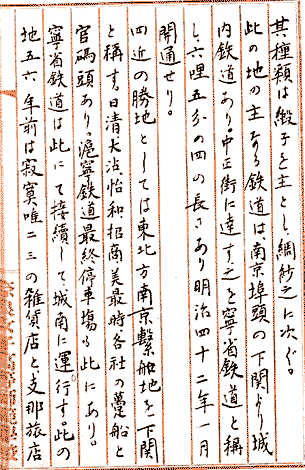 其種類は緞子を主とし、綢紗之に次ぐ。
此の地の主なる鉄道は南京埠頭の下関より城
内鉄道あり。中正街に達す之を寧省鉄道と称
し、六哩五分の四の長さあり明治四十二年一月
開通せり。
四近の勝地としては東北方南京繋船地を下関
と称す。日清大沽怡和招商美最時各社の躉船と
官碼頭あり。滬寧鉄道最終停車場も此にあり。
寧省鉄道は此にて接續して城南に運行す。此の
地五六年前は寂寞唯二三の雑貨店と支那旅店